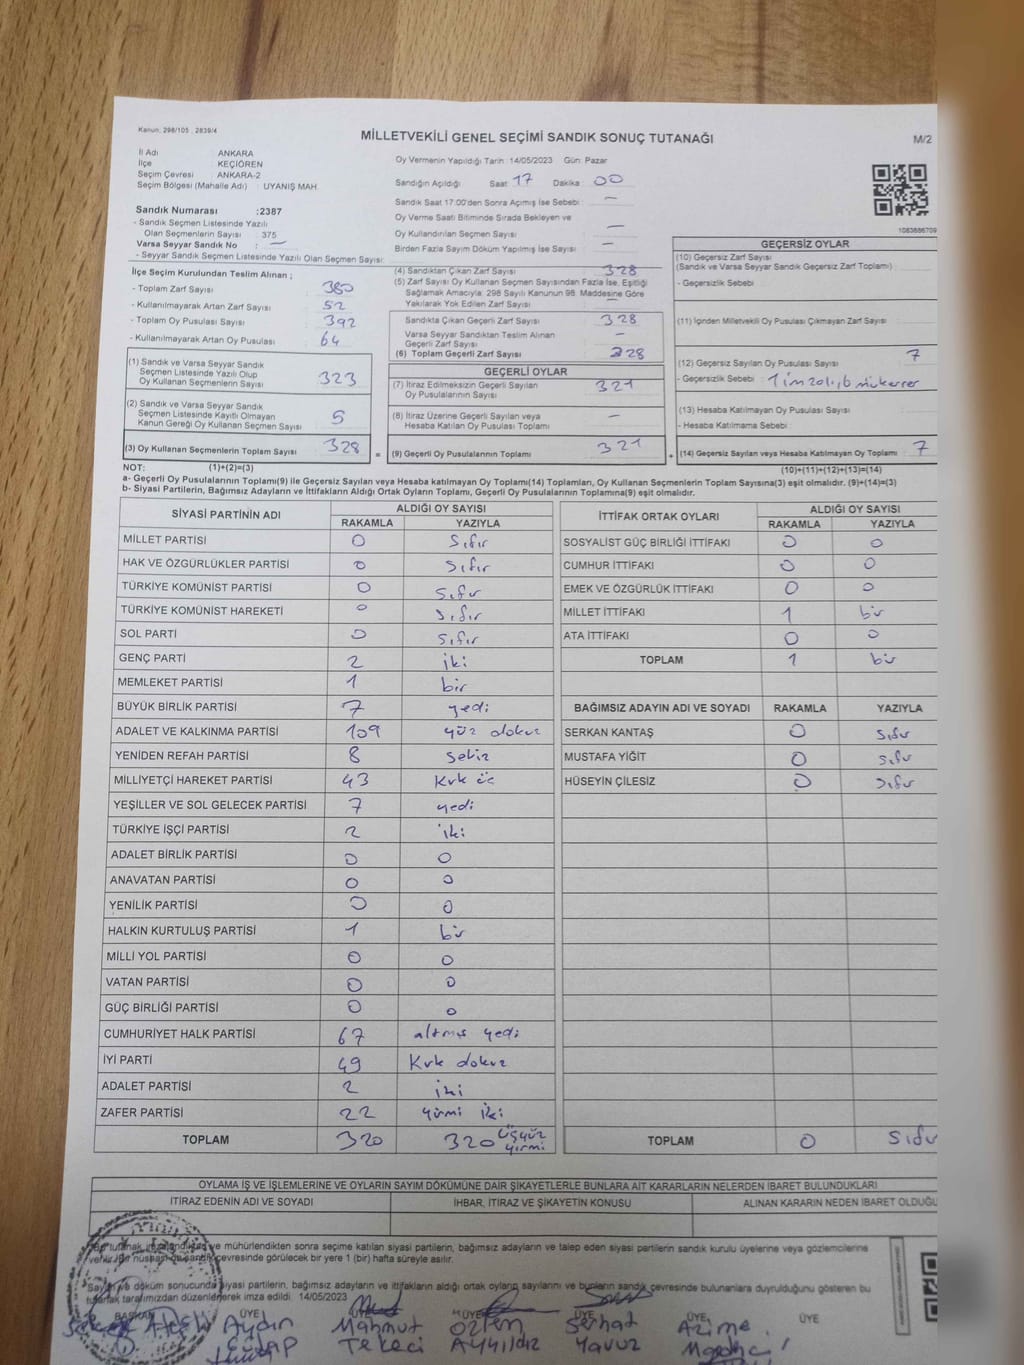 Kanun, 298/105 , 2839/4
MİLLETVEKİLİ GENEL SEÇİMİ SANDIK SONUÇ TUTANAĞI
M/2
İl Adı ANKARA
İlçe KEÇİÖREN
Seçim Çevresi : ANKARA-2
Seçim Bölgesi (Mahalle Adı) : UYANIŞ MAH
Oy Vermenin Yapıldığı Tarih : 14/05/2023 Gün: Pazar
Sandığın Açıldığı Saat 17 Dakika 00
Sandık Saat 17:00'den Sonra Açımış İse Sebebi : —
Oy Verme Saati Bitiminde Sırada Bekleyen ve
Oy Kullandırılan Seçmen Sayısı —
Birden Fazla Sayım Döküm Yapılmış İse Sayısı —
Sandık Numarası :2387
- Sandık Seçmen Listesinde Yazılı
Olan Seçmenlerin Sayısı : 375
Varsa Seyyar Sandık No : —
- Seyyar Sandık Seçmen Listesinde Yazılı Olan Seçmen Sayısı:
1083886709
İlçe Seçim Kurulundan Teslim Alınan ;
- Toplam Zarf Sayısı 380
- Kullanılmayarak Artan Zarf Sayısı 52
- Toplam Oy Pusulası Sayısı 392
- Kullanılmayarak Artan Oy Pusulası 64
(1) Sandık ve Varsa Seyyar Sandık
Seçmen Listesinde Yazılı Olup
Oy Kullanan Seçmenlerin Sayısı 323
(2) Sandık ve Varsa Seyyar Sandık
Seçmen Listesinde Kayıtlı Olmayan
Kanun Gereği Oy Kullanan Seçmen Sayısı 5
(3) Oy Kullanan Seçmenlerin Toplam Sayısı 328 =
(4) Sandıktan Çıkan Zarf Sayısı 328
(5) Zarf Sayısı Oy Kullanan Seçmen Sayısından Fazla İse, Eşitliği
Sağlamak Amacıyla; 298 Sayılı Kanunun 98. Maddesine Göre
Yakılarak Yok Edilen Zarf Sayısı —
Sandıkta Çıkan Geçerli Zarf Sayısı 328
Varsa Seyyar Sandıktan Teslim Alınan
Geçerli Zarf Sayısı —
(6) Toplam Geçerli Zarf Sayısı 328
GEÇERLİ OYLAR
(7) İtiraz Edilmeksizin Geçerli Sayılan
Oy Pusulalarının Sayısı 321
(8) İtiraz Üzerine Geçerli Sayılan veya
Hesaba Katılan Oy Pusulası Toplamı —
(9) Geçerli Oy Pusulalarının Toplamı 321 +
GEÇERSİZ OYLAR
(10) Geçersiz Zarf Sayısı
(Sandık ve Varsa Seyyar Sandık Geçersiz Zarf Toplamı)
- Geçersizlik Sebebi
(11) İçinden Milletvekili Oy Pusulası Çıkmayan Zarf Sayısı
(12) Geçersiz Sayılan Oy Pusulası Sayısı 7
- Geçersizlik Sebebi : 1 imzalı, 6 mükerrer
(13) Hesaba Katılmayan Oy Pusulası Sayısı
- Hesaba Katılmama Sebebi
(14) Geçersiz Sayılan veya Hesaba Katılmayan Oy Toplamı 7
NOT: (1)+(2)=(3)
(10)+(11)+(12)+(13)=(14)
a- Geçerli Oy Pusulalarının Toplamı(9) ile Geçersiz Sayılan veya Hesaba Katılmayan Oy Toplamı(14) Toplamları, Oy Kullanan Seçmenlerin Toplam Sayısına(3) eşit olmalıdır. (9)+(14)=(3)
b- Siyasi Partilerin, Bağımsız Adayların ve İttifakların Aldığı Ortak Oyların Toplamı, Geçerli Oy Pusulalarının Toplamına(9) eşit olmalıdır.
SİYASİ PARTİNİN ADI ALDIĞI OY SAYISI
RAKAMLA YAZIYLA
MİLLET PARTİSİ 0 Sıfır
HAK VE ÖZGÜRLÜKLER PARTİSİ 0 Sıfır
TÜRKİYE KOMÜNİST PARTİSİ 0 Sıfır
TÜRKİYE KOMÜNİST HAREKETİ 0 Sıfır
SOL PARTİ 0 Sıfır
GENÇ PARTİ 2 iki
MEMLEKET PARTİSİ 1 bir
BÜYÜK BİRLİK PARTİSİ 7 yedi
ADALET VE KALKINMA PARTİSİ 109 yüz dokuz
YENİDEN REFAH PARTİSİ 8 Sekiz
MİLLİYETÇİ HAREKET PARTİSİ 43 Kırk üç
YEŞİLLER VE SOL GELECEK PARTİSİ 7 yedi
TÜRKİYE İŞÇİ PARTİSİ 2 iki
ADALET BİRLİK PARTİSİ 0 0
ANAVATAN PARTİSİ 0 0
YENİLİK PARTİSİ 0 0
HALKIN KURTULUŞ PARTİSİ 1 bir
MİLLİ YOL PARTİSİ 0 0
VATAN PARTİSİ 0 0
GÜÇ BİRLİĞİ PARTİSİ 0 0
CUMHURİYET HALK PARTİSİ 67 altmış yedi
İYİ PARTİ 49 Kırk dokuz
ADALET PARTİSİ 2 iki
ZAFER PARTİSİ 22 yirmi iki
TOPLAM 320 320 üçyüz yirmi
İTTİFAK ORTAK OYLARI ALDIĞI OY SAYISI
RAKAMLA YAZIYLA
SOSYALİST GÜÇ BİRLİĞİ İTTİFAKI 0 0
CUMHUR İTTİFAKI 0 0
EMEK VE ÖZGÜRLÜK İTTİFAKI 0 0
MİLLET İTTİFAKI 1 bir
ATA İTTİFAKI 0 0
TOPLAM 1 bir
BAĞIMSIZ ADAYIN ADI VE SOYADI RAKAMLA YAZIYLA
SERKAN KANTAŞ 0 Sıfır
MUSTAFA YİĞİT 0 Sıfır
HÜSEYİN ÇİLESİZ 0 Sıfır
TOPLAM 0 Sıfır
OYLAMA İŞ VE İŞLEMLERİNE VE OYLARIN SAYIM DÖKÜMÜNE DAİR ŞİKAYETLERLE BUNLARA AİT KARARLARIN NELERDEN İBARET BULUNDUKLARI
İTİRAZ EDENİN ADI VE SOYADI İHBAR, İTİRAZ VE ŞİKAYETİN KONUSU ALINAN KARARIN NEDEN İBARET OLDUĞU
ve mühürlendikten sonra seçime katılan siyasi partilerin, bağımsız adayların ve talep eden siyasi partilerin sandık kurulu üyelerine veya gözlemcilerine
çevresinde görülecek bir yere 1 (bir) hafta süreyle asılır.
Sayım ve döküm sonucunda siyasi partilerin, bağımsız adayların ve ittifakların aldığı ortak oyların sayılarını ve bunların sandık çevresinde bulunanlara duyrulduğunu gösteren bu
tutanak tarafımızdan düzenlenerek imza edildi. 14/05/2023
BAŞKAN ÜYE ÜYE ÜYE ÜYE ÜYE ÜYE
Aydın Mahmut Özlem Serhat Azime
Tekeci Ayyıldız Yavuz